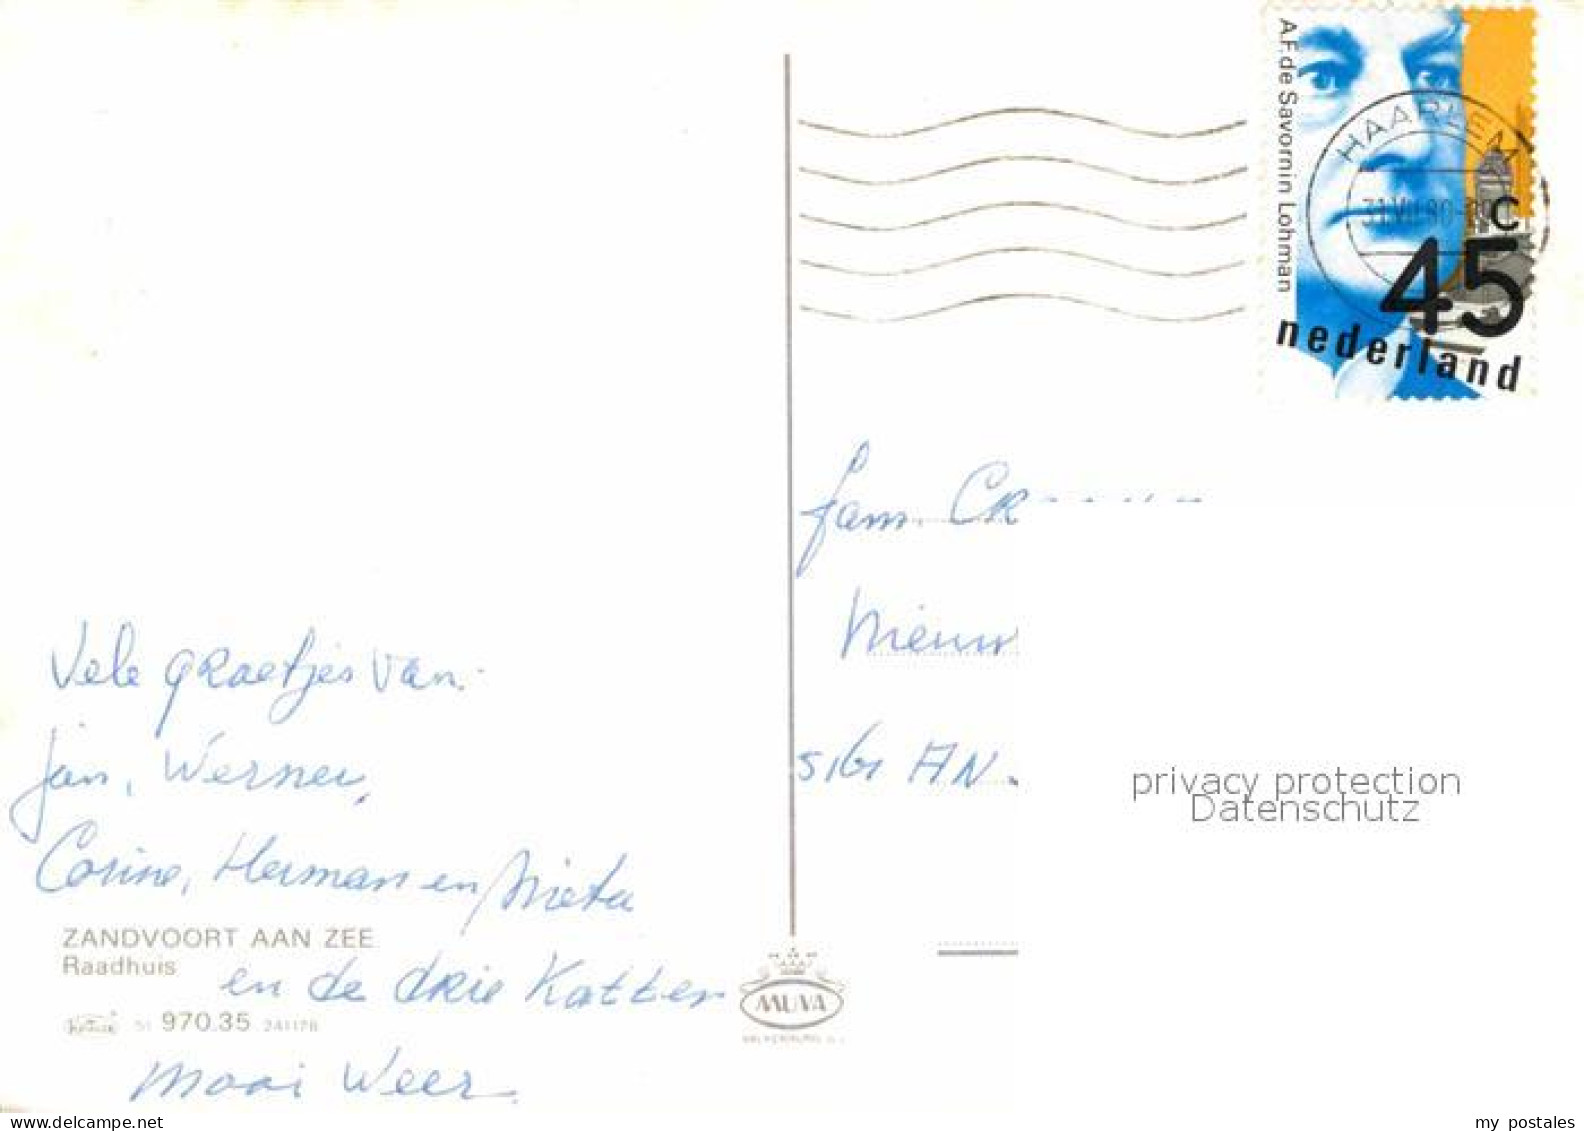 A.F. de Savornin Lohman
HAARLEM
c
45
nederland
fam. CR
Nieuw
5161 AN.
privacy protection
Datenschutz
Vele groetjes van:
Jan, Werner,
Corine, Herman en Mieta
ZANDVOORT AAN ZEE
Raadhuis
en de drie Katten
51 970.35 241178
MUVA
VALKENBURG
Mooi Weer.
www.delcampe.net
my_postales